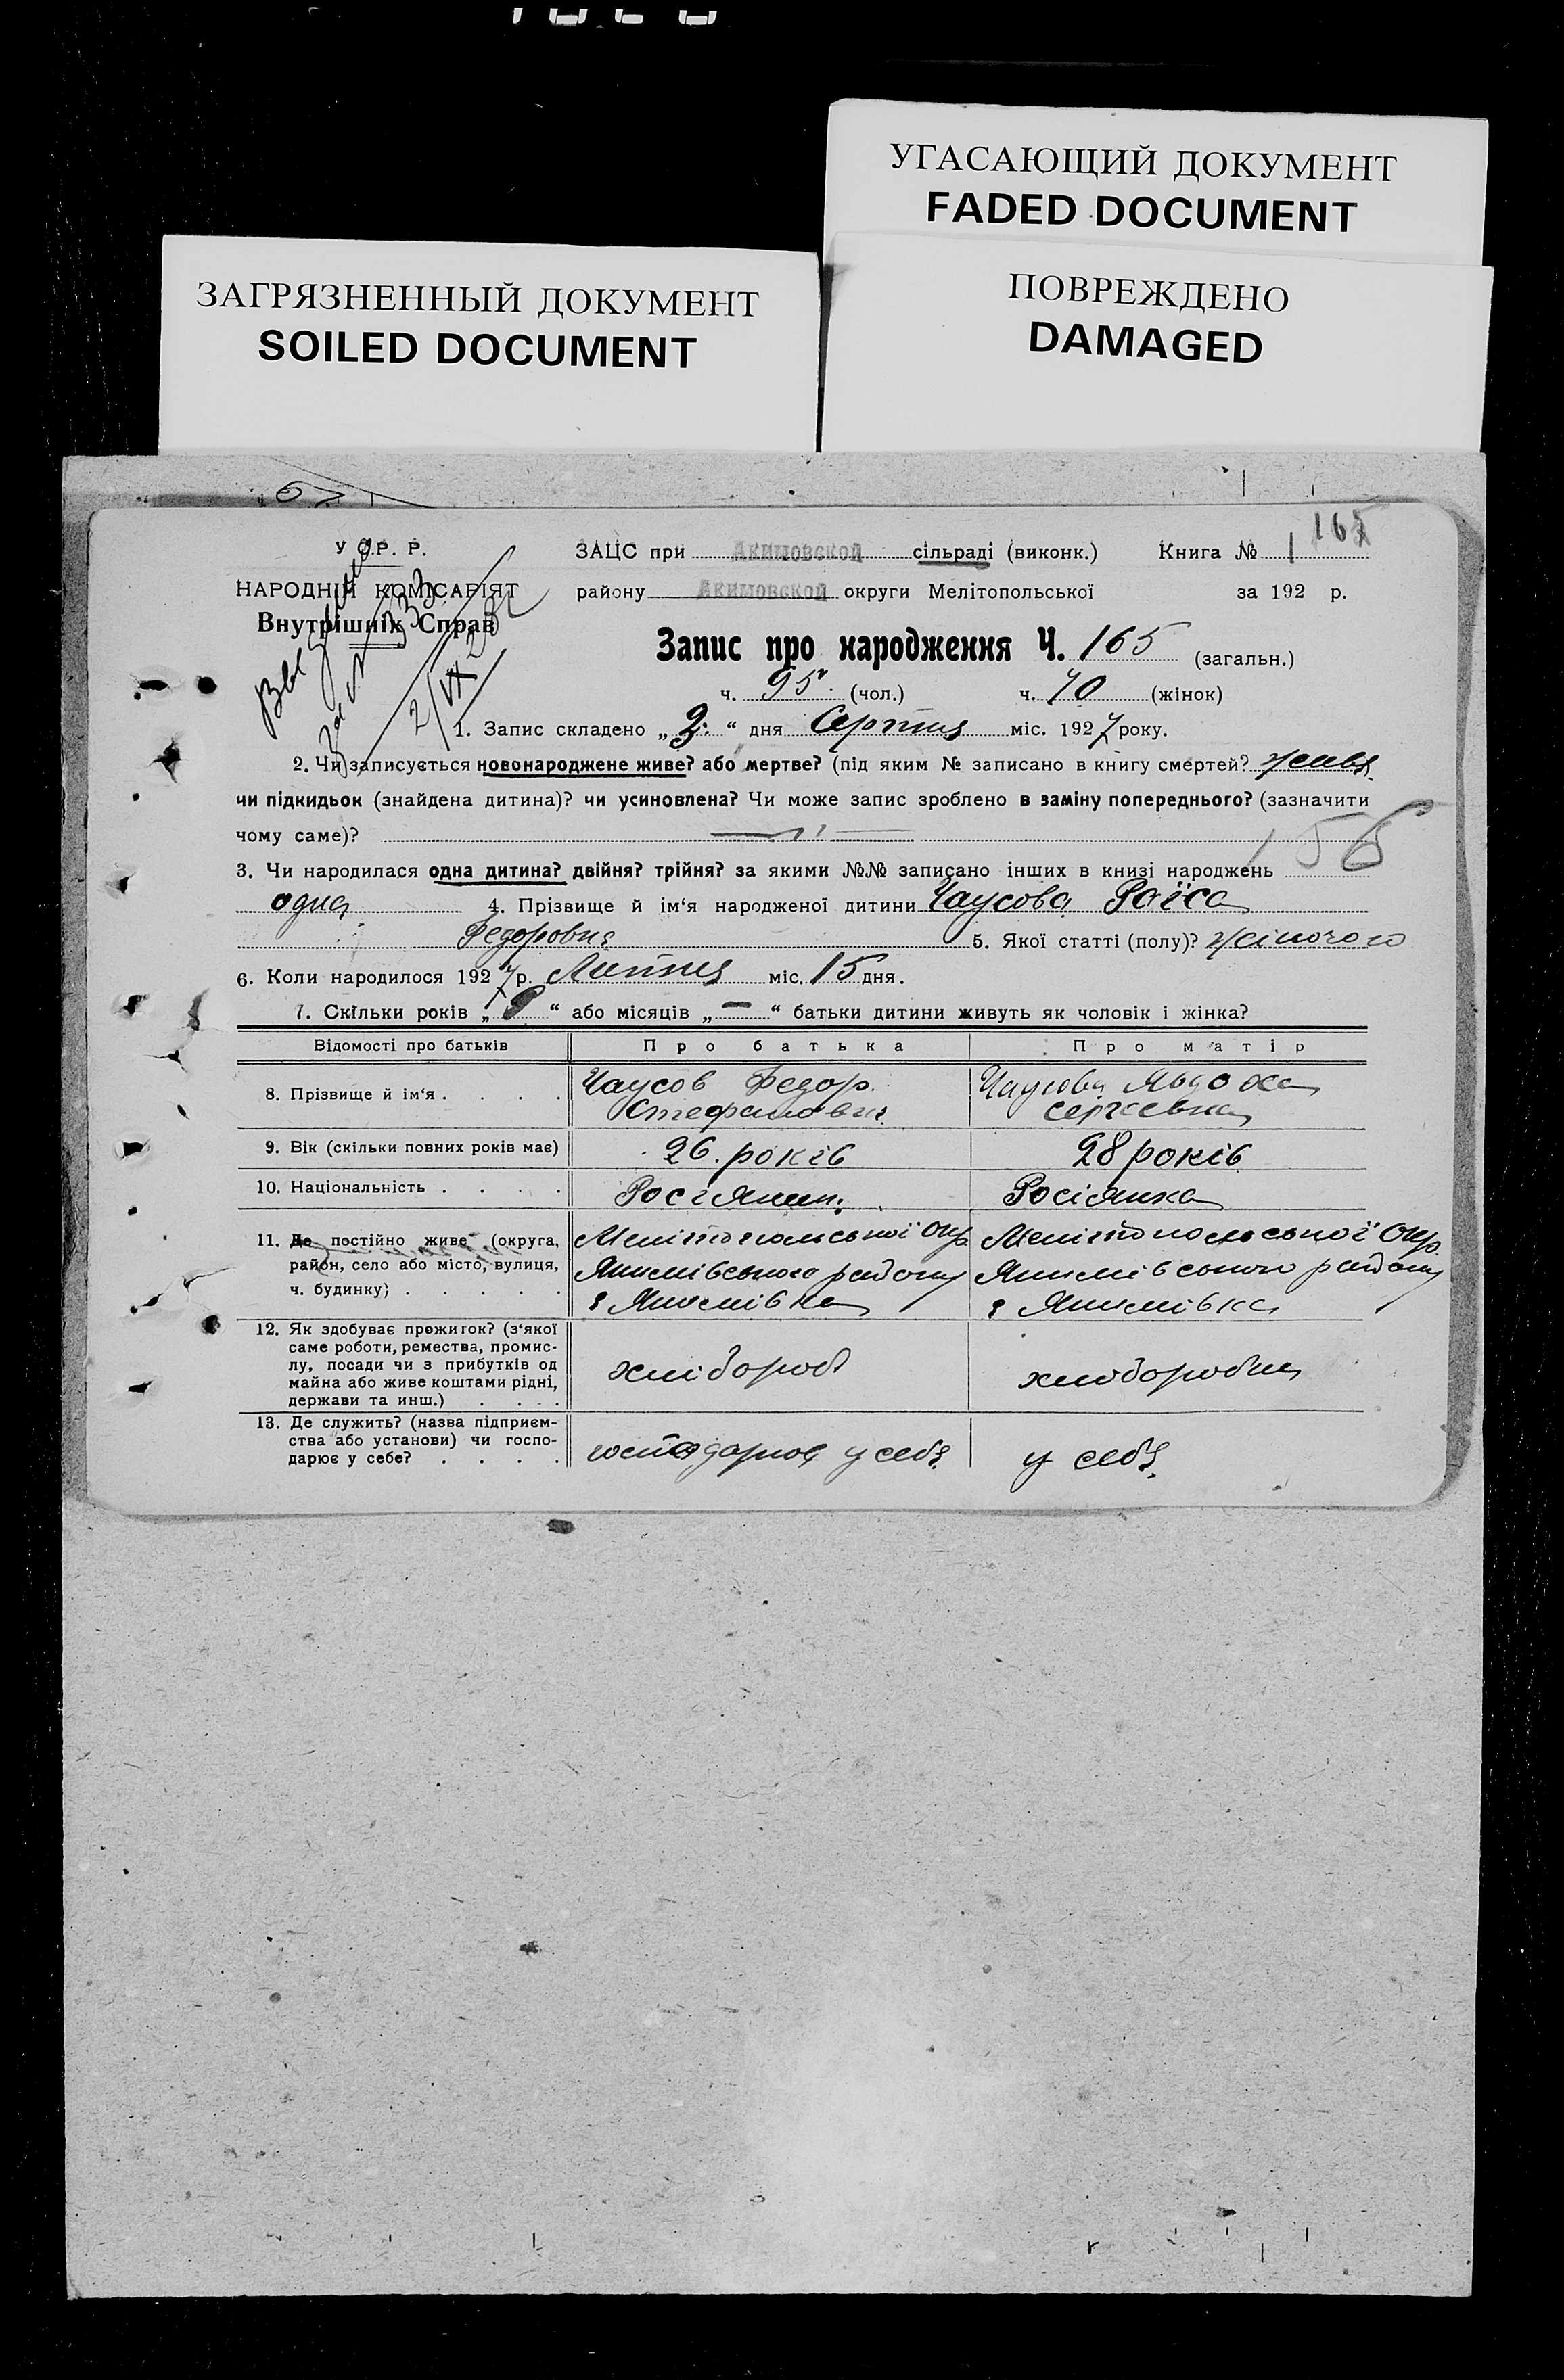 УГАСАЮЩИЙ ДОКУМЕНТ
FADED DOCUMENT
ЗАГРЯЗНЕННЫЙ ДОКУМЕНТ
SOILED DOCUMENT
ПОВРЕЖДЕНО
DAMAGED
165
У С.Р. Р.
НАРОДНІЙ КОМІСАРІЯТ
Внутрішніх Справ
ЗАЦС при Акимовской сільраді (виконк.) Книга № 1
району Акимовской округи Мелітопольської за 192 р.
Запис про народження Ч. 165 (загальн.)
ч. 95 (чол.) ч. 70 (жінок)
1. Запис складено „ 3 “ дня Серпня міс. 1927 року.
2. Чи записується новонароджене живе? або мертве? (під яким № записано в книгу смертей? живе
чи підкидьок (знайдена дитина)? чи усиновлена? Чи може запис зроблено в заміну попереднього? (зазначити
чому саме)?
3. Чи народилася одна дитина? двійня? трійня? за якими №№ записано інших в книзі народжень
одна 4. Прізвище й ім‘я народженої дитини Чаусова Раїса
Федоровна 5. Якої статті (полу)? жіночого
6. Коли народилось 1927 р. Липня міс. 15 дня.
7. Скільки років „ “ або місяців „ — “ батьки дитини живуть як чоловік і жінка?
Відомості про батьків Про батька Про матір
8. Прізвище й ім‘я . . . . Чаусов Федор Стефанович Чаусова Явдоха Сергеевна
9. Вік (скільки повних років має) 26 років 28 років
10. Національність . . . . Росіянин Росіянка
11. Де постійно живе (округа,
район, село або місто, вулиця,
ч. будинку; . . . . .
Мелітопольської Окр.
Якимівського району
с Якимівка
Мелітопольської Окр.
Якимівського району
с Якимівка
12. Як здобуває прожиток? (з‘якої
саме роботи, ремества, промис-
лу, посади чи з прибутків од
майна або живе коштами рідні,
держави та инш.) . . . .
хлібороб
хлоборобка
13. Де служить? (назва підприєм-
ства або установи) чи госпо-
дарює у себе? . . . .
господарює у себе
у себе